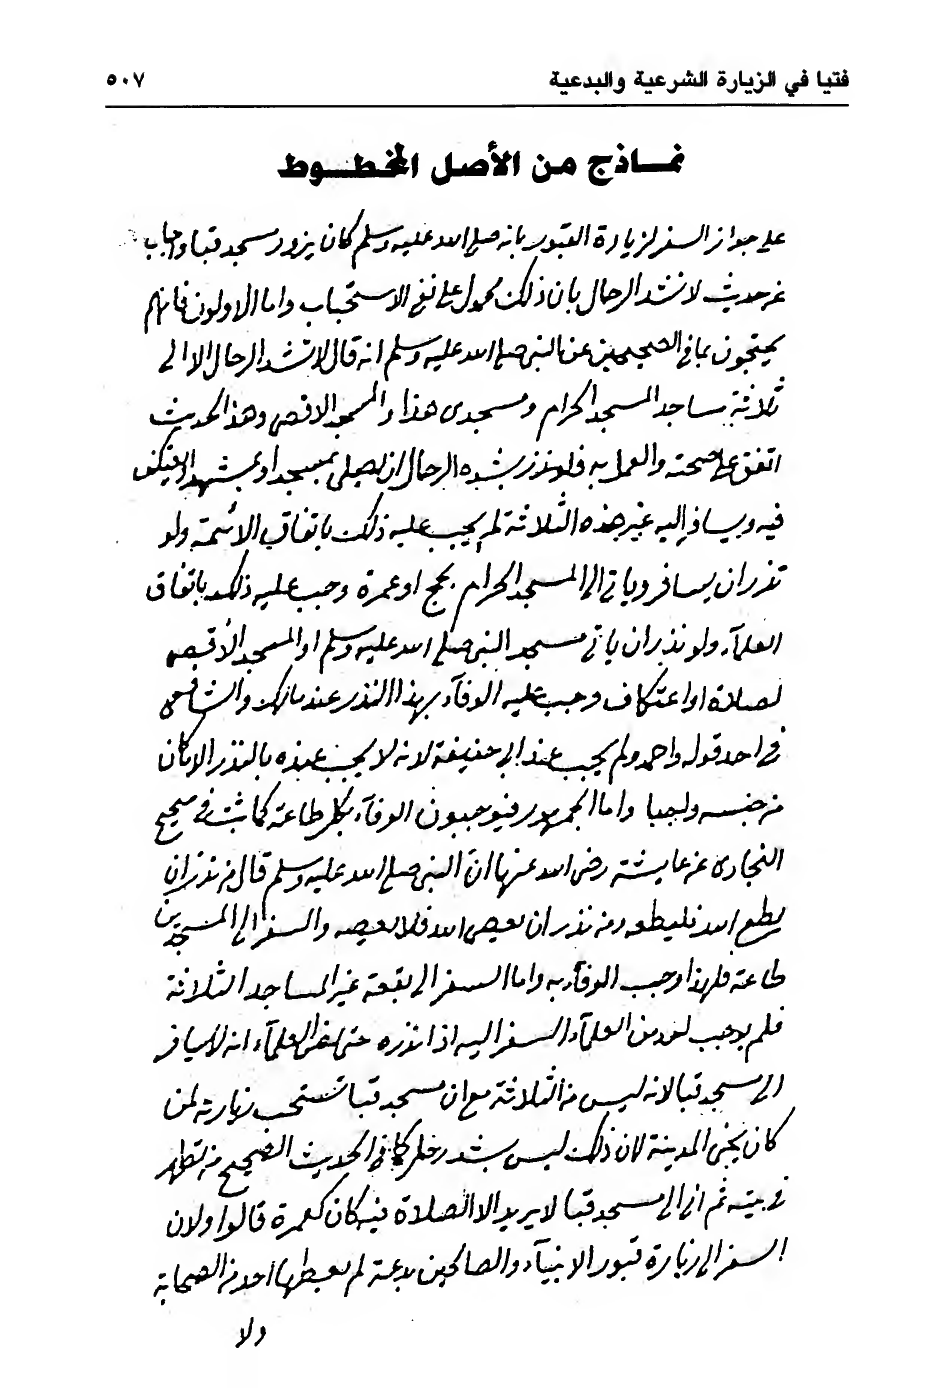 فتيا في الزيارة الشرعية والبدعية ٥٠٧
نماذج من الأصل المخطوط
على جواز السفر لزيارة القبور بانه صلى الله عليه وسلم كان يزور مسجد قبا واجاب
عن حديث لا تشد الرحال بان ذلك محمول على نفي الاستحباب واما الاولون فانهم
يحتجون بما في الصحيحين عن النبي صلى الله عليه وسلم انه قال لا تشد الرحال الا الى
ثلاثة مساجد المسجد الحرام ومسجدى هذا والمسجد الاقصى وهذا الحديث
اتفق على صحته والعمل به فلو نذر بشده الرحال ان يصلى بمسجد او بمشهد او يعتكف
فيه ويسافر اليه غير هذه الثلاثة لم يجب عليه ذلك باتفاق الائمة ولو
نذر ان يسافر وياتى الى المسجد الحرام بحج او عمرة وجب عليه ذلك باتفاق
العلمآء ولو نذر ان ياتى مسجد النبي صلى الله عليه وسلم او المسجد الأقصى
لصلاة او اعتكاف وجب عليه الوفآء بهذا النذر عند مالك والشافعى
في احد قوليه واحمد ولم يجب عند ابي حنيفة لانه لا يجب عنده بالنذر الا ما كان
من جنسه واجبا واما الجمهور فيوجبون الوفآء بكل طاعة كما ثبت في صحيح
البخارى عن عايشة رضي الله عنها انّ النبي صلى الله عليه وسلم قال من نذر ان
يطع الله فليطعه ومن نذر ان يعصى الله فلا يعصه والسفر الى المسجدين
طاعة فلهذا وجب الوفآء به واما السفر الى بقعة غير المساجد الثلاثة
فلم يوجب احد من العلمآء السفر اليه اذا نذره حتى نص العلمآء انه لا يسافر
الى مسجد قبا لانه ليس من الثلاثة مع ان مسجد قبا تستحب زيارته لمن
كان يجى المدينة لان ذلك ليس بشد رحل كما في الحديث الصحيح من تطهر
في بيته ثم اتى الى مسجد قبا لا يريد الا الصلاة فيه كان كعمرة قالوا ولان
السفر الى زيارة قبور الانبيآء والصالحين بدعة لم يفعلها احد من الصحابة
ولا